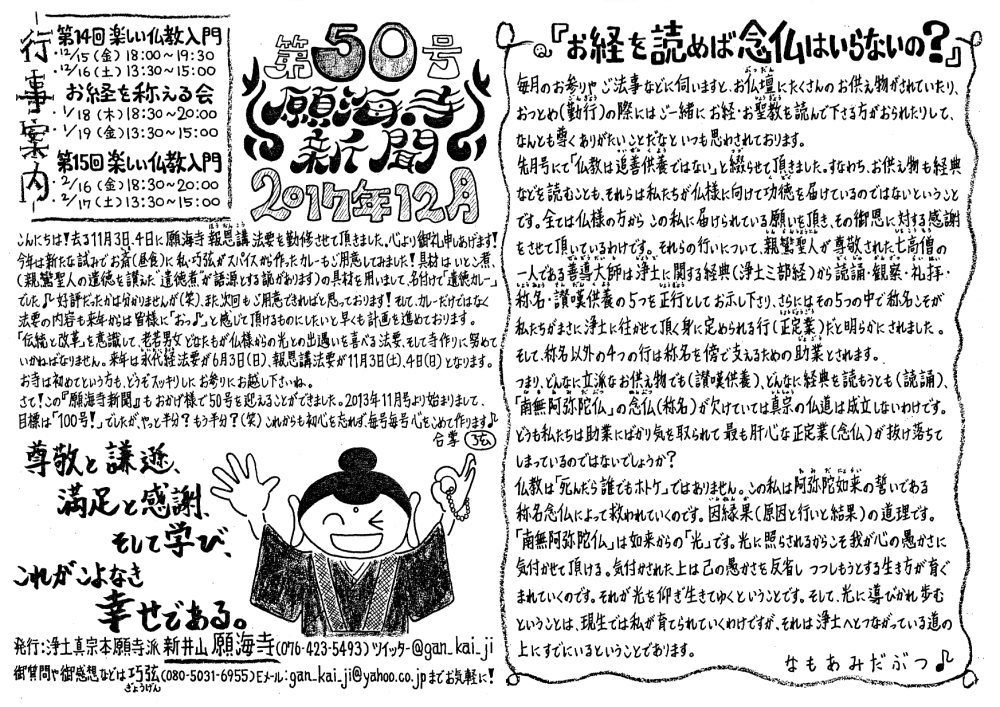 行事案内
第14回楽しい仏教入門
・12/15(金)18:00~19:30
・12/16(土)13:30~15:00
お経を称える会
・1/18(木)18:30~20:00
・1/19(金)13:30~15:00
第15回楽しい仏教入門
・2/16(金)18:30~20:00
・2/17(土)13:30~15:00
第50号
願海寺
新聞
2017年12月
こんにちは!去る11月3日、4日に願海寺報恩講法要を勤修させて頂きました。心より御礼申しあげます!
ほうおんこう
今年は新たな試みでお斎(昼食)に私・巧弦がスパイスから作ったカレーもご用意してみました!具材はいとこ煮、
(親鸞聖人の遺徳を讃えた"遺徳煮"が語源とする説があります)の具材を用いまして、名付けて「遺徳カレー」
でした。♪好評だったかは分かりませんが(笑)、また次回もご用意できればと思っております!そして、カレーだけではなく
法要の内容も来年からは皆様に「おっ♪」と感じて頂けるものにしたいと早くも計画を進めております。
「伝統と改革」を意識して、老若男女どなたもが仏様からの光との出遇いを喜べる法要、そして寺作りに努めて
いかねばなりません。来年は永代経法要が6月3日(日)、報恩講法要が11月3日(土)、4日(日)となります。
お寺は初めてという方も、どうぞスッキリしにお参りにお越し下さいね。
さて!この『願海寺新聞』もおかげ様で50号を迎えることができました。2013年11月号より始まりまして、
目標は「100号!」でしたが、やっと半分?もう半分?(笑)これからも初心を忘れず、毎号毎号心をこめて作ります♪
合掌 弦
尊敬と謙遜、
満足と感謝、
そして学び、
これがこよなき
幸せである。
発行:浄土真宗本願寺派 新井山 願海寺(076-423-5493)ツイッター@gan_kai_ji
御質問や御感想などは巧弦(080-5031-6955)Eメール:gan_kai_ji@yahoo.co.jpまでお気軽に!
ぎょうげん
Q.『お経を読めば念仏はいらないの?』
毎月のお参りやご法事などに伺いますと、お仏壇にたくさんのお供え物がされていたり、
おつとめ(勤行)の際にはご一緒にお経・お聖教を読んで下さる方がおられたりして、
なんとも尊くありがたいことだなといつも思わされております。
先月号にて「仏教は追善供養ではない」と綴らせて頂きました。すなわち、お供え物も経典
などを読むことも、それらは私たちが仏様に向けて功徳を届けているのではないということ
です。全ては仏様の方からこの私に届けられている願いを頂き、その御恩に対する感謝
をさせて頂いているわけです。それらの行いについて、親鸞聖人が尊敬された七高僧の
一人である善導大師は浄土に関する経典(浄土三部経)から読誦・観察・礼拝・
称名・讃嘆供養の5つを正行としてお示し下さり、さらにはその5つの中で称名こそが
私たちがまさに浄土に往かせて頂く身に定められる行(正定業)だと明らかにされました。
そして、称名以外の4つの行は称名を傍で支えるための助業とされます。
つまり、どんなに立派なお供え物でも(讃嘆供養)、どんなに経典を読もうとも(読誦)、
「南無阿弥陀仏」の念仏(称名)が欠けていては真宗の仏道は成立しないわけです。
どうも私たちは助業にばかり気を取られて最も肝心な正定業(念仏)が抜け落ちて
しまっているのではないでしょうか?
仏教は「死んだら誰でもホトケ」ではありません。この私は阿弥陀如来の誓いである
称名念仏によって救われていくのです。因縁果(原因と行いと結果)の道理です。
「南無阿弥陀仏」は如来からの「光」です。光に照らされるからこそ我が心の愚かさに
気付かせて頂ける。気付かされた上は己の愚かさを反省しつつしもうとする生き方が育ぐ
まれていくのです。それが光を仰ぎ生きてゆくということです。そして、光に導びかれ歩む
ということは、現生では私が育てられていくわけですが、それは浄土へとつながっている道の
上にすでにいるということであります。
なもあみだぶつ♪